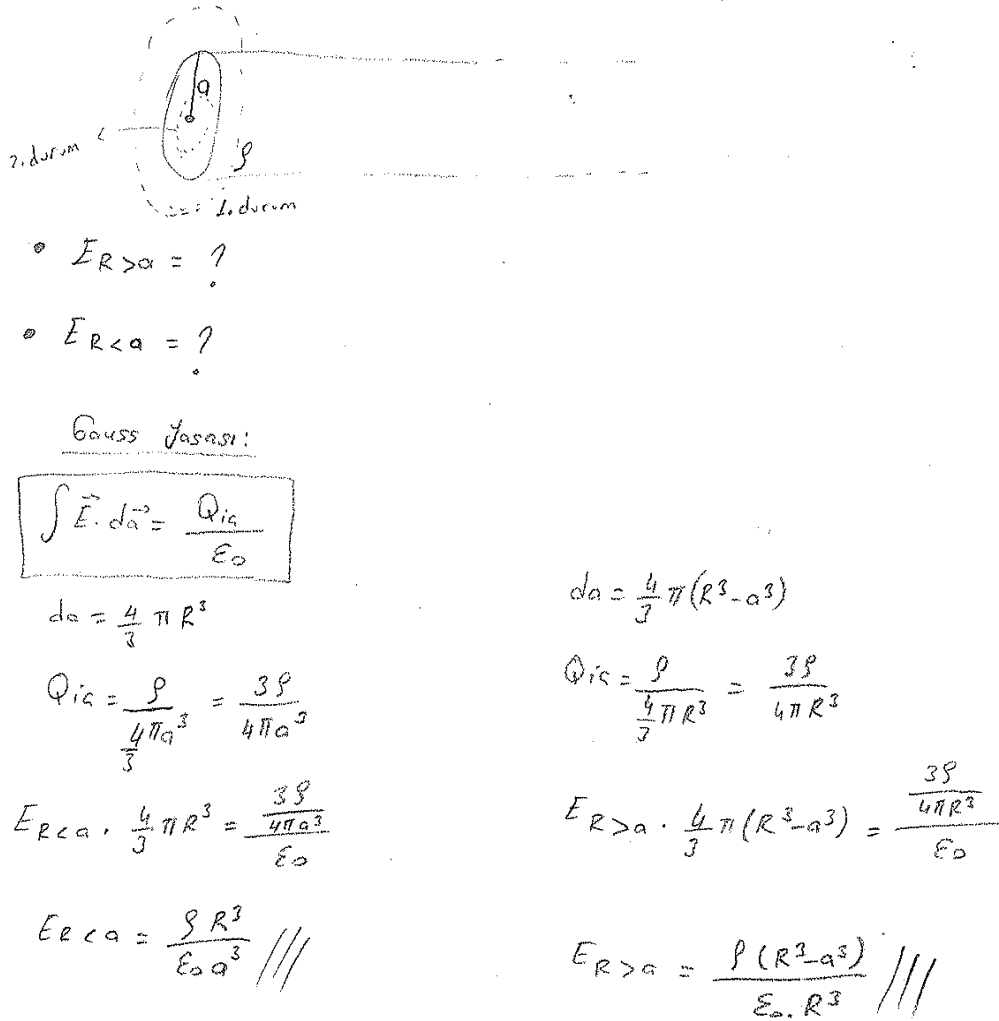 a
2. durum
ρ
1. durum
• E_{R>a} = ?
• E_{R<a} = ?
Gauss Yasası:
∫ E⃗ . da⃗ = Qiç / ε₀
da = 4/3 π R³
Qiç = ρ / (4/3 π a³) = 3ρ / (4πa³)
E_{R<a} . 4/3 π R³ = (3ρ / (4πa³)) / ε₀
E_{R<a} = ρ R³ / (ε₀ a³) ///
da = 4/3 π (R³ - a³)
Qiç = ρ / (4/3 π R³) = 3ρ / (4πR³)
E_{R>a} . 4/3 π (R³ - a³) = (3ρ / (4πR³)) / ε₀
E_{R>a} = ρ (R³ - a³) / (ε₀ . R³) ///